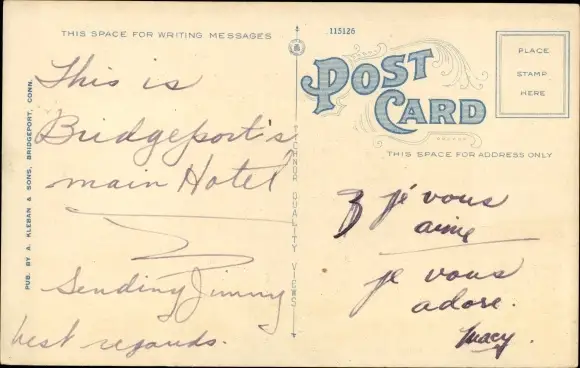 THIS SPACE FOR WRITING MESSAGES
This is
Bridgeport's
main Hotel
Sending Jimmy
best regards.
PUB. BY A. KLEBAN & SONS, BRIDGEPORT, CONN.
TICHNOR QUALITY VIEWS
115126
POST CARD
PLACE
STAMP
HERE
THIS SPACE FOR ADDRESS ONLY
je vous
aime
je vous
adore.
Macy.